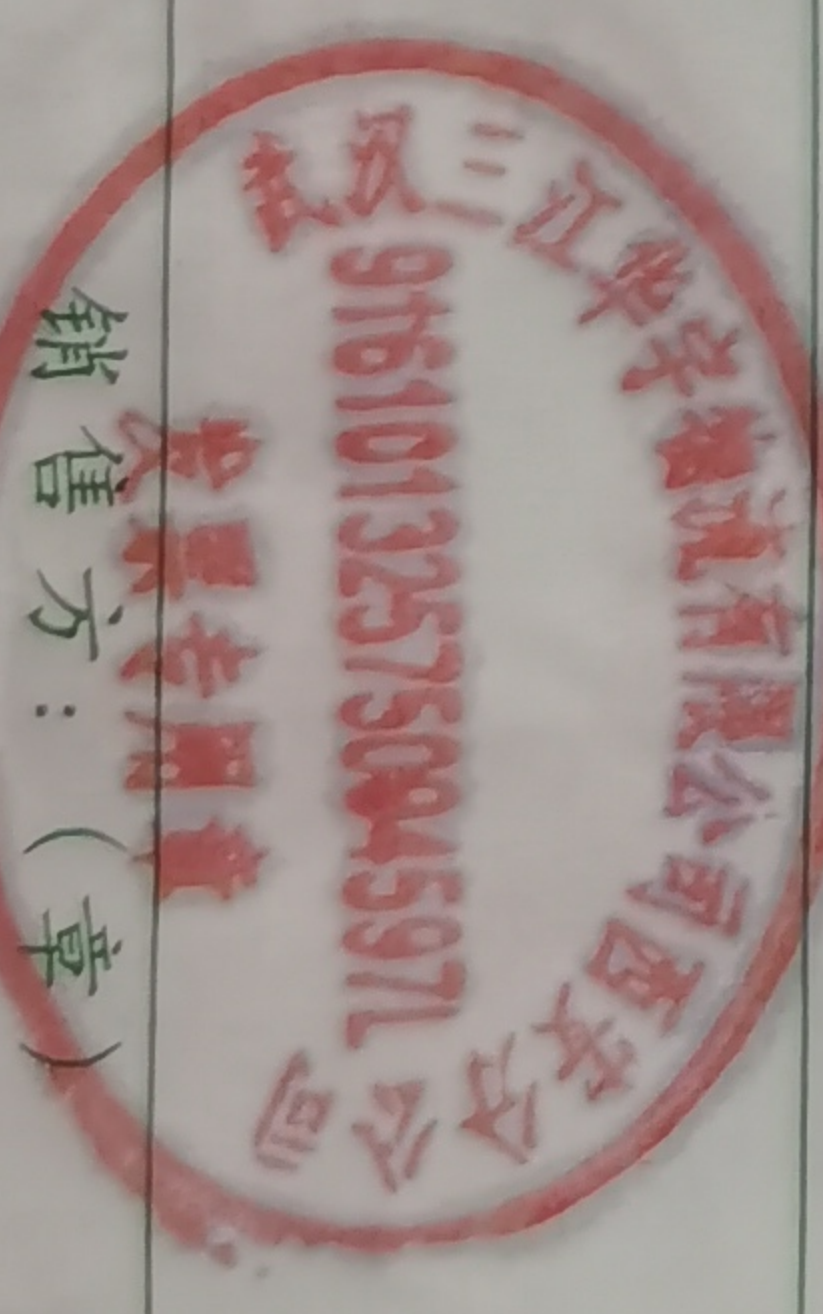 武汉三江华宇物流有限公司西安分公司
91610132575094597L
发票专用章
銷售方：（章）